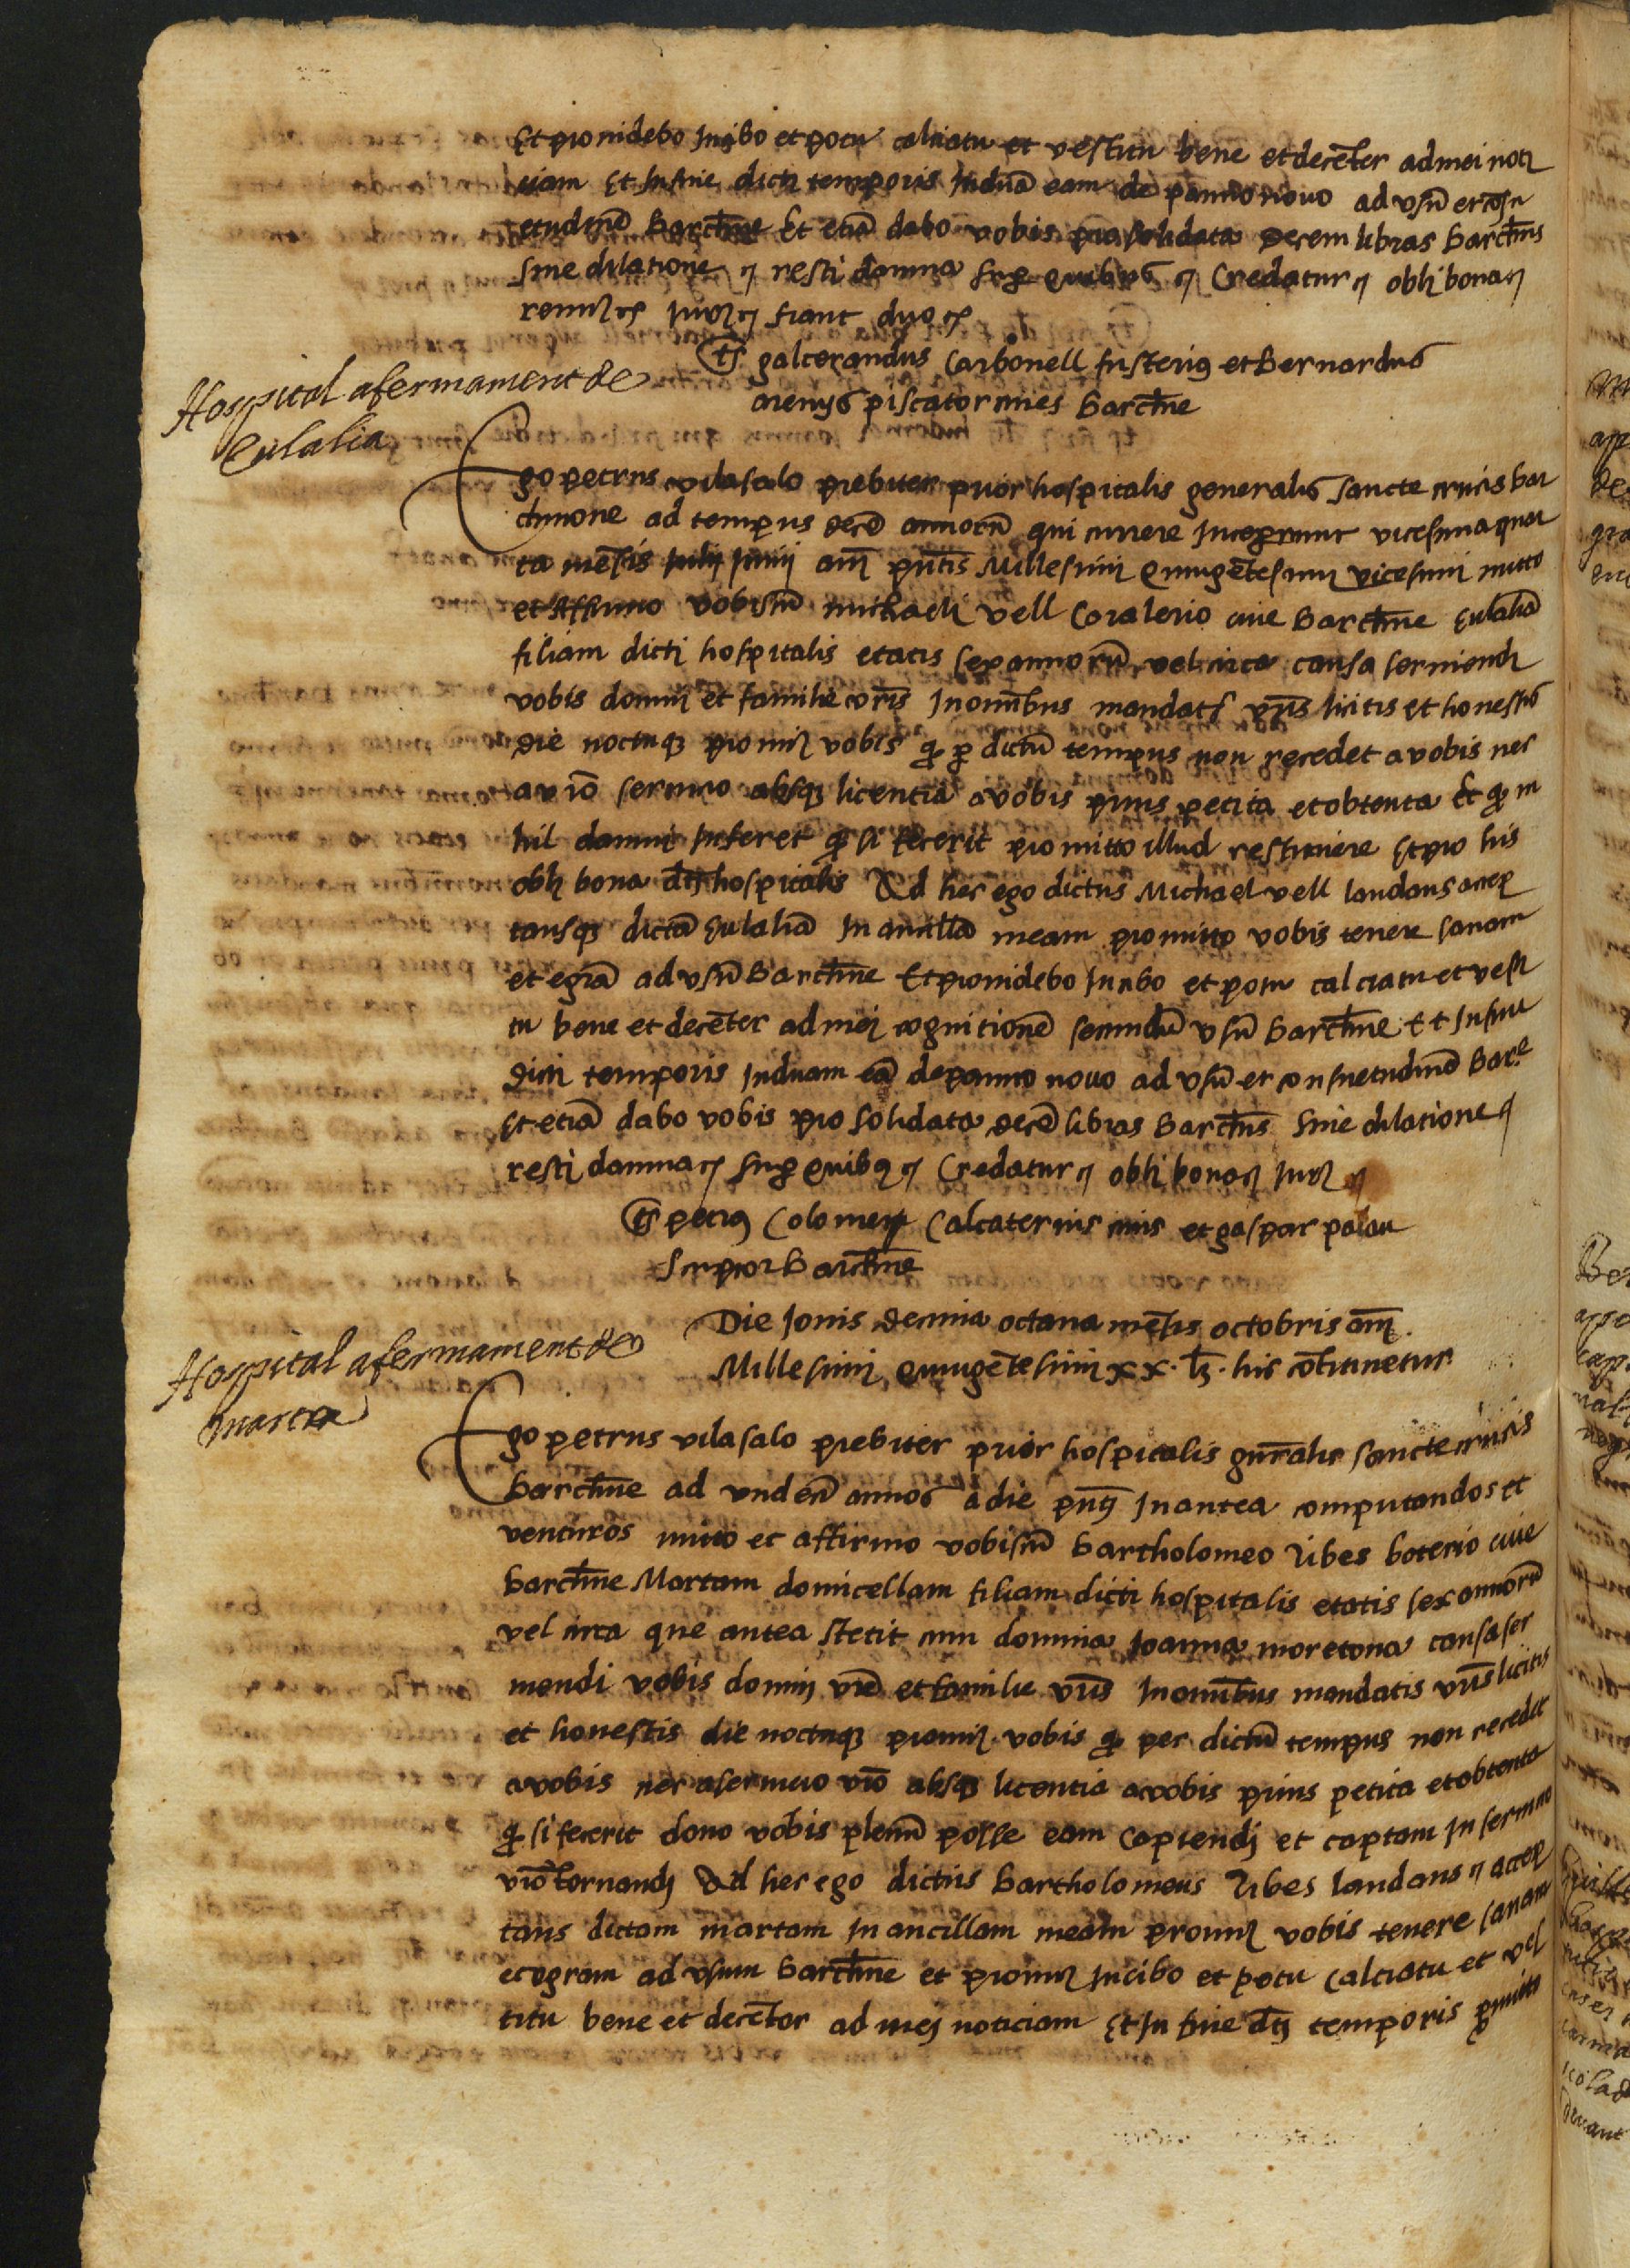 Et providebo In cibo et potu calciatu et vestitu bene et decēter ad mei noti
ciam Et In fine dicti temporis Induā eam de panno novo ad vsū et cōsu
etudinē Barchne Et etiā dabo vobis pro solidata decem libras Barchns
sine dilatione resti damna sup quibus Credatur obli bona
renūt Iur fiant duo
ts galcerandus Carbonell fusterius et Bernardus
arenys piscator cives Barchne
Hospital afermament de
Eulalia
Ego petrus vilasalo prebiter prior hospitalis generalis sancte crucis bar
chinone ad tempus decē annorū qui currere Inceperunt vicesima quar
ta mēsis Julij Junij anni pntis Millesimi quingētesimi vicesimi mitto
et Affirmo vobiscū michaeli vell Coralerio cive Barchne Eulaliā
filiam dicti hospitalis etatis sex annorū vel circa causa serviendi
vobis domui et familie vris In omnibus mandatis vris licitis et honestis
die noctuqȝ promit vobis qȝ p dictū tempus non recedet a vobis nec
a vro servicio absqȝ licentia a vobis prius petita et obtenta Et qȝ ni
hil damni Inferet qȝ si fecerit promitto illud restituere Et pro his
obli bona dti hospitalis Ad hec ego dictus Michael vell laudans accep
tansqȝ dictā Eulaliā In ancillā meam promitto vobis tenere sanam
et egrā ad vsū Barchne Et providebo In cibo et potu calciatu et vesti
tu bene et decēter ad mei cognitionē secundū vsū Barchne Et In fine
dicti temporis Induam eā de panno novo ad vsū et consuetudinē Bare
Et etiā dabo vobis pro solidata decē libras Barchns sine dilatione
resti damna sup quibus Credatur obli bona Iur
ts petrus Colomer Calcaterius civis et gaspar palau
scriptor Barchne
Die Jovis decima octava mēsis octobris anni
Millesimi quingētesimi xx. lȝ. hic cōtinetur
Hospital afermament de
marta
Ego petrus vilasalo prebiter prior hospitalis gnralis sancte crucis
barchne ad vndecī annos a die pnti In antea computandos et
venturos mitto et affirmo vobiscū Bartholomeo Ribes boterio cive
barchne Martam domicellam filiam dicti hospitalis etatis sex annorū
vel circa que antea stetit cum domina Joanna moretona causa ser
viendi vobis domui vre et familie vris In omnibus mandatis vris licitis
et honestis die noctuqȝ promit vobis qȝ per dictū tempus non recedet
a vobis nec a servicio vro absqȝ licentia a vobis prius petita et obtenta
qȝ si fecerit dono vobis plenū posse eam capiendi et captam In servicio
vro tornandi Ad hec ego dictus Bartholomeus Ribes laudans accep
tans dictam martam In ancillam meam promit vobis tenere sanam
et egram ad vsum barchne et promit In cibo et potu Calciatu et ves
titu bene et decēter ad mei noticiam Et In fine dti temporis pmitto